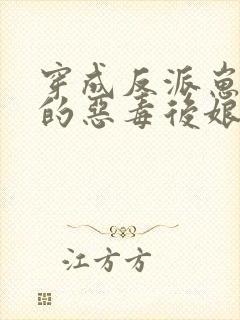 穿成反派崽崽
的惡毒後娘
江方方